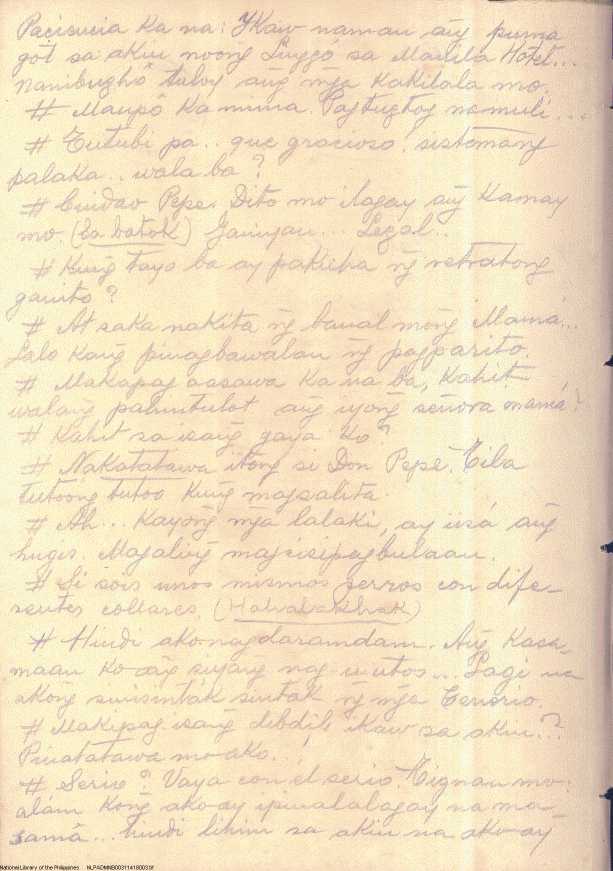 Pacisucia ka na: Ykaw naman ang puma
got sa akin noong Linggó sa Manila Hotel...
Nanibughó tuloy ang mga kakilala mo.
# Maupo ka muna. Tagtugtog na muli...
# Tutubi pa.. que gracioso. sistemang
palaka.. wala ba?
# Cuidao Pepe. Dito mo ilagay ang kamay
mo. (Sa batok) Ganiyan... Legal..
# Kung tayo ba ay pakuha ng retratong
ganito?
# At saka nakita ng banal mong Mamá...
Lalo kang pinagbawalan ng pagparito.
# Makapag aasawa ka na ba, kahit
walang pahintulot ang iyong señora mamá?
# Kahit sa isang gaya ko?
# Nakatatawa itong si Don Pepe. Tila
totoong totoo kung magsalita.
# Ah... kayong mga lalaki, ay iisá ang
hugis. Magaling magsisipagbulaan.
# Si sois unos mismos perros con dife-
rentes collares. (Hahalakhak)
# Hindi ako nagdaramdam. Ang kasa-
maan ko ang siyang nag uutos... Pagi na
akong sinisintak sintak ng mga Tenorio.
# Makipag isang dibdib ikaw sa akin..?
Pinatatawa mo ako..!
# Serio? Vaya con el serio. Tignan mo:
alam kong ako ay ipinalalagay na ma-
samâ... hindi lihim sa akin na ako ay
National Library of the Philippines